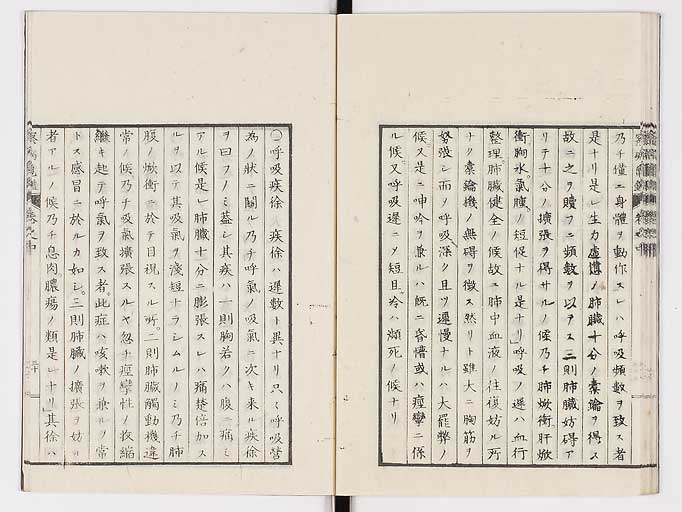 乃チ僅ニ身體ヲ動作スレハ呼吸頻數ヲ致ス者
是ナリ是レ生力虛憊ノ肺臟十分ノ素論ヲ得ス
故ニ之ヲ贖フニ頻數ヲ以テス三則肺臟妨碍ア
リテ十分ノ擴張ヲ得サルノ候乃チ肺焮衝肝焮
衝胸水氣腹ノ短促ナル是ナリ呼吸ノ遲ハ血行
整理肺臟健全ノ候故ニ肺中血液ノ往復妨ル所
ナク素論機ノ無碍ヲ徴ス然リト雖大ニ胸筋ヲ
努役シ而ノ呼吸深ク且ツ遲慢ナルハ大罷弊ノ
候又是ニ呻吟ヲ兼ルハ既ニ昏憒或ハ痙攣ニ係
ル候又呼吸遲ニメ短且冷ハ瀕死ノ候ナリ
〇呼吸疾徐 疾徐ハ遲數ト異ナリ只〻呼吸營
為ノ狀ニ關ル乃チ呼氣ノ吸氣ニ次キ來ル疾徐
ヲ曰フノミ蓋シ其疾ハ一則胸若クハ腹ニ痛ミ
アル候是レ肺臟十分ニ膨張スレハ痛楚倍加ス
ルヲ以テ其吸氣ヲ淺短ナラシムルノミ乃チ肺
腹ノ焮衝ニ於テ目視スル所二則肺臟觸動機違
常ノ候乃チ吸氣擴張スルヤ忽チ痙攣性ノ攻縮
繼キ起テ呼氣ヲ致ス者此症ハ咳嗽ヲ兼ルヲ常
トス感冒ニ於ルカ如シ三則肺臟ノ擴張ヲ妨ル
者アルノ候乃チ息肉膿瘍ノ類是レナリ其徐ハ
卷之中